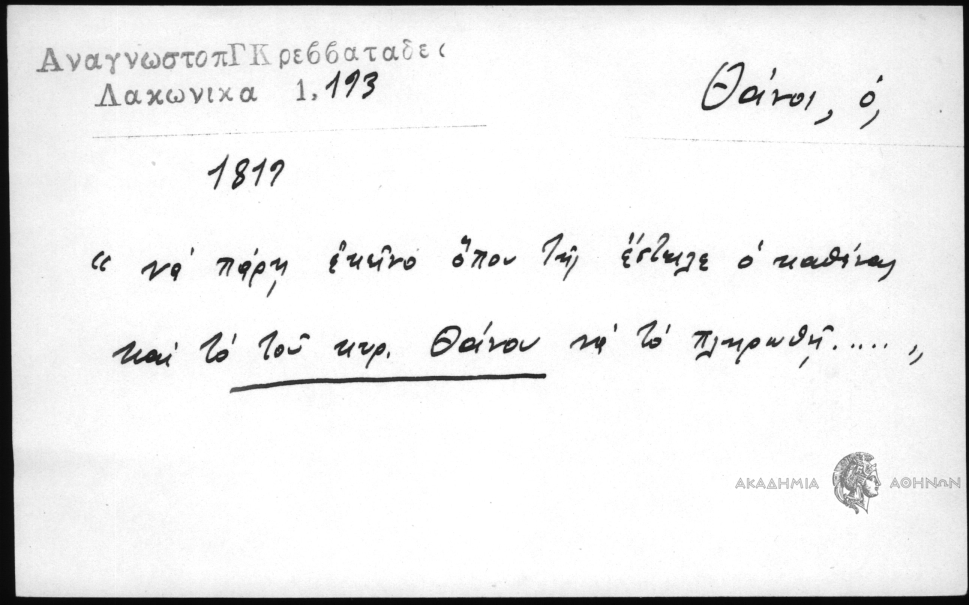 ΑναγνωστοπΓΚρεββαταδες
Λακωνικα 1, 193
Θάνος, ὁ,
1812
« νά πάρῃ ἐκεῖνο ὅπου τῆς ἔστειλε ὁ καθένας
καί τό τοῦ κυρ. Θάνου νά τό πληρωθῇ..... „
ΑΚΑΔΗΜΙΑ ΑΘΗΝΩΝ